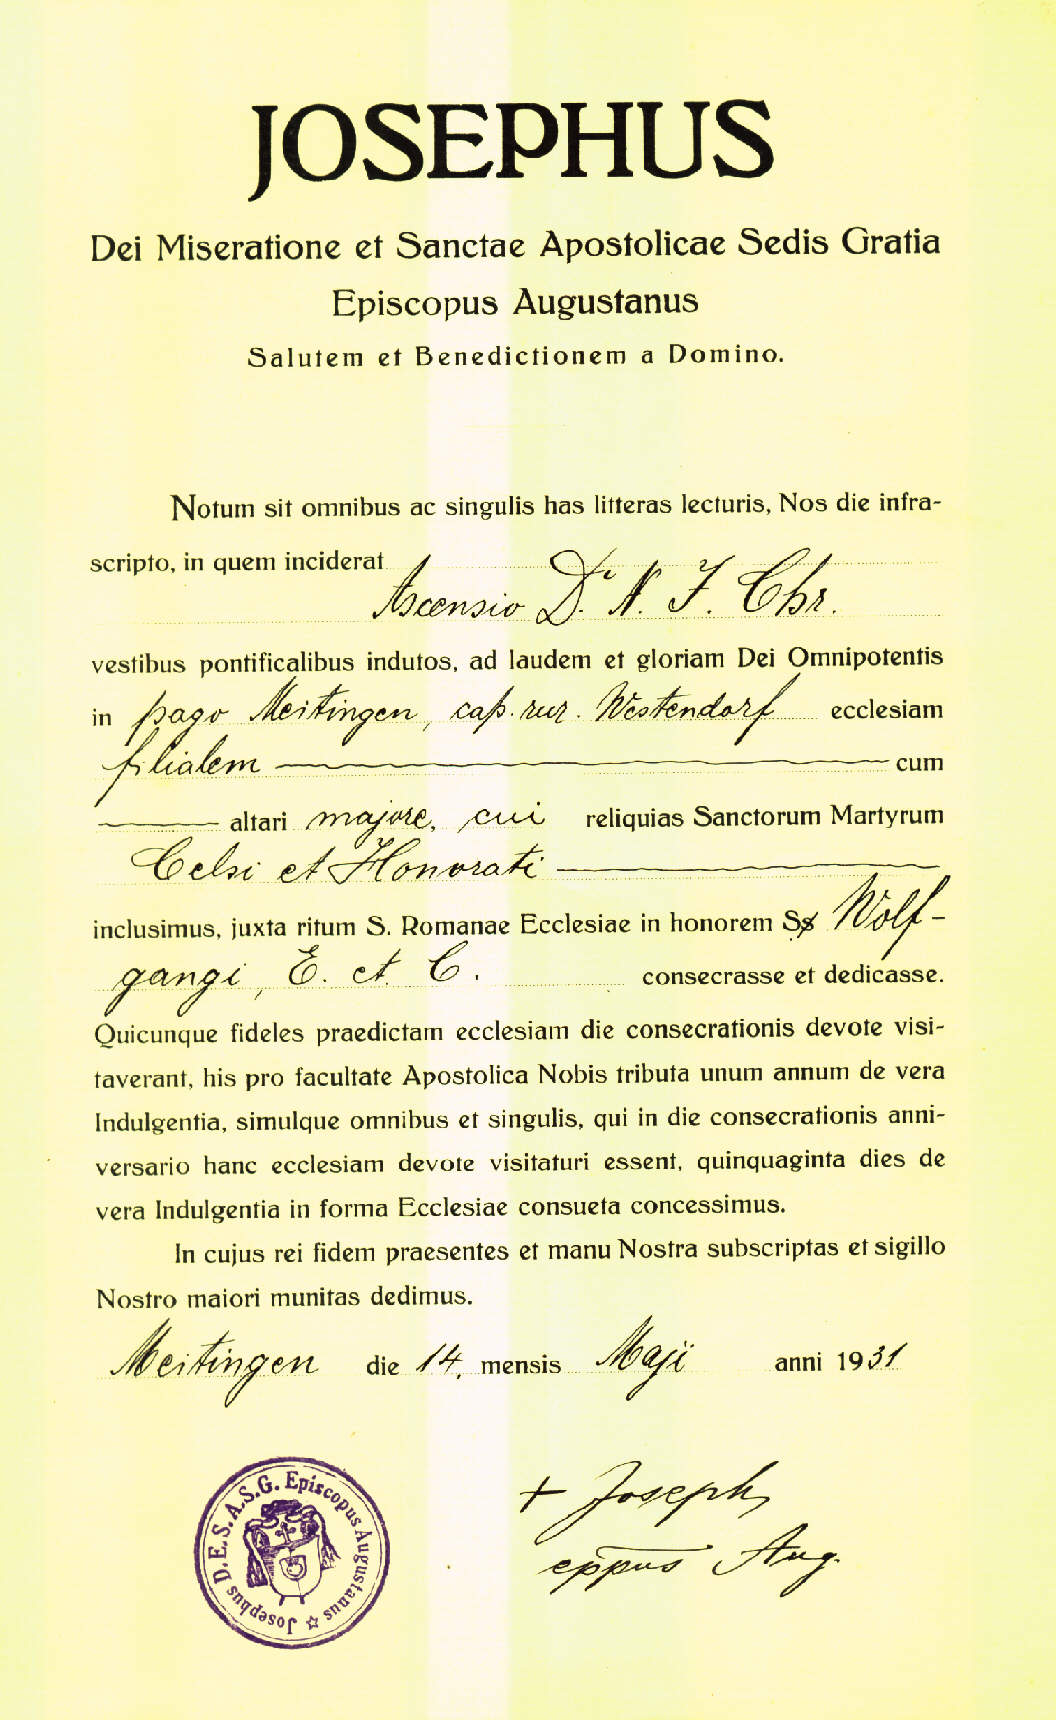 JOSEPHUS
Dei Miseratione et Sanctae Apostolicae Sedis Gratia
Episcopus Augustanus
Salutem et Benedictionem a Domino.
Notum sit omnibus ac singulis has litteras lecturis, Nos die infra-
scripto, in quem inciderat
Ascensio D. N. J. Chr.
vestibus pontificalibus indutos, ad laudem et gloriam Dei Omnipotentis
in pago Meitingen, cap. rur. Westendorf ecclesiam
filialem cum
altari majore, cui reliquias Sanctorum Martyrum
Celsi et Honorati
inclusimus, juxta ritum S. Romanae Ecclesiae in honorem S. Wolf-
gangi, E. et C. consecrasse et dedicasse.
Quicunque fideles praedictam ecclesiam die consecrationis devote visi-
taverant, his pro facultate Apostolica Nobis tributa unum annum de vera
Indulgentia, simulque omnibus et singulis, qui in die consecrationis anni-
versario hanc ecclesiam devote visitaturi essent, quinquaginta dies de
vera Indulgentia in forma Ecclesiae consueta concessimus.
In cujus rei fidem praesentes et manu Nostra subscriptas et sigillo
Nostro maiori munitas dedimus.
Meitingen die 14. mensis Maji anni 1931
Josephus D.E.S.A.S.G. Episcopus Augustanus
+ Joseph,
eppus Aug.